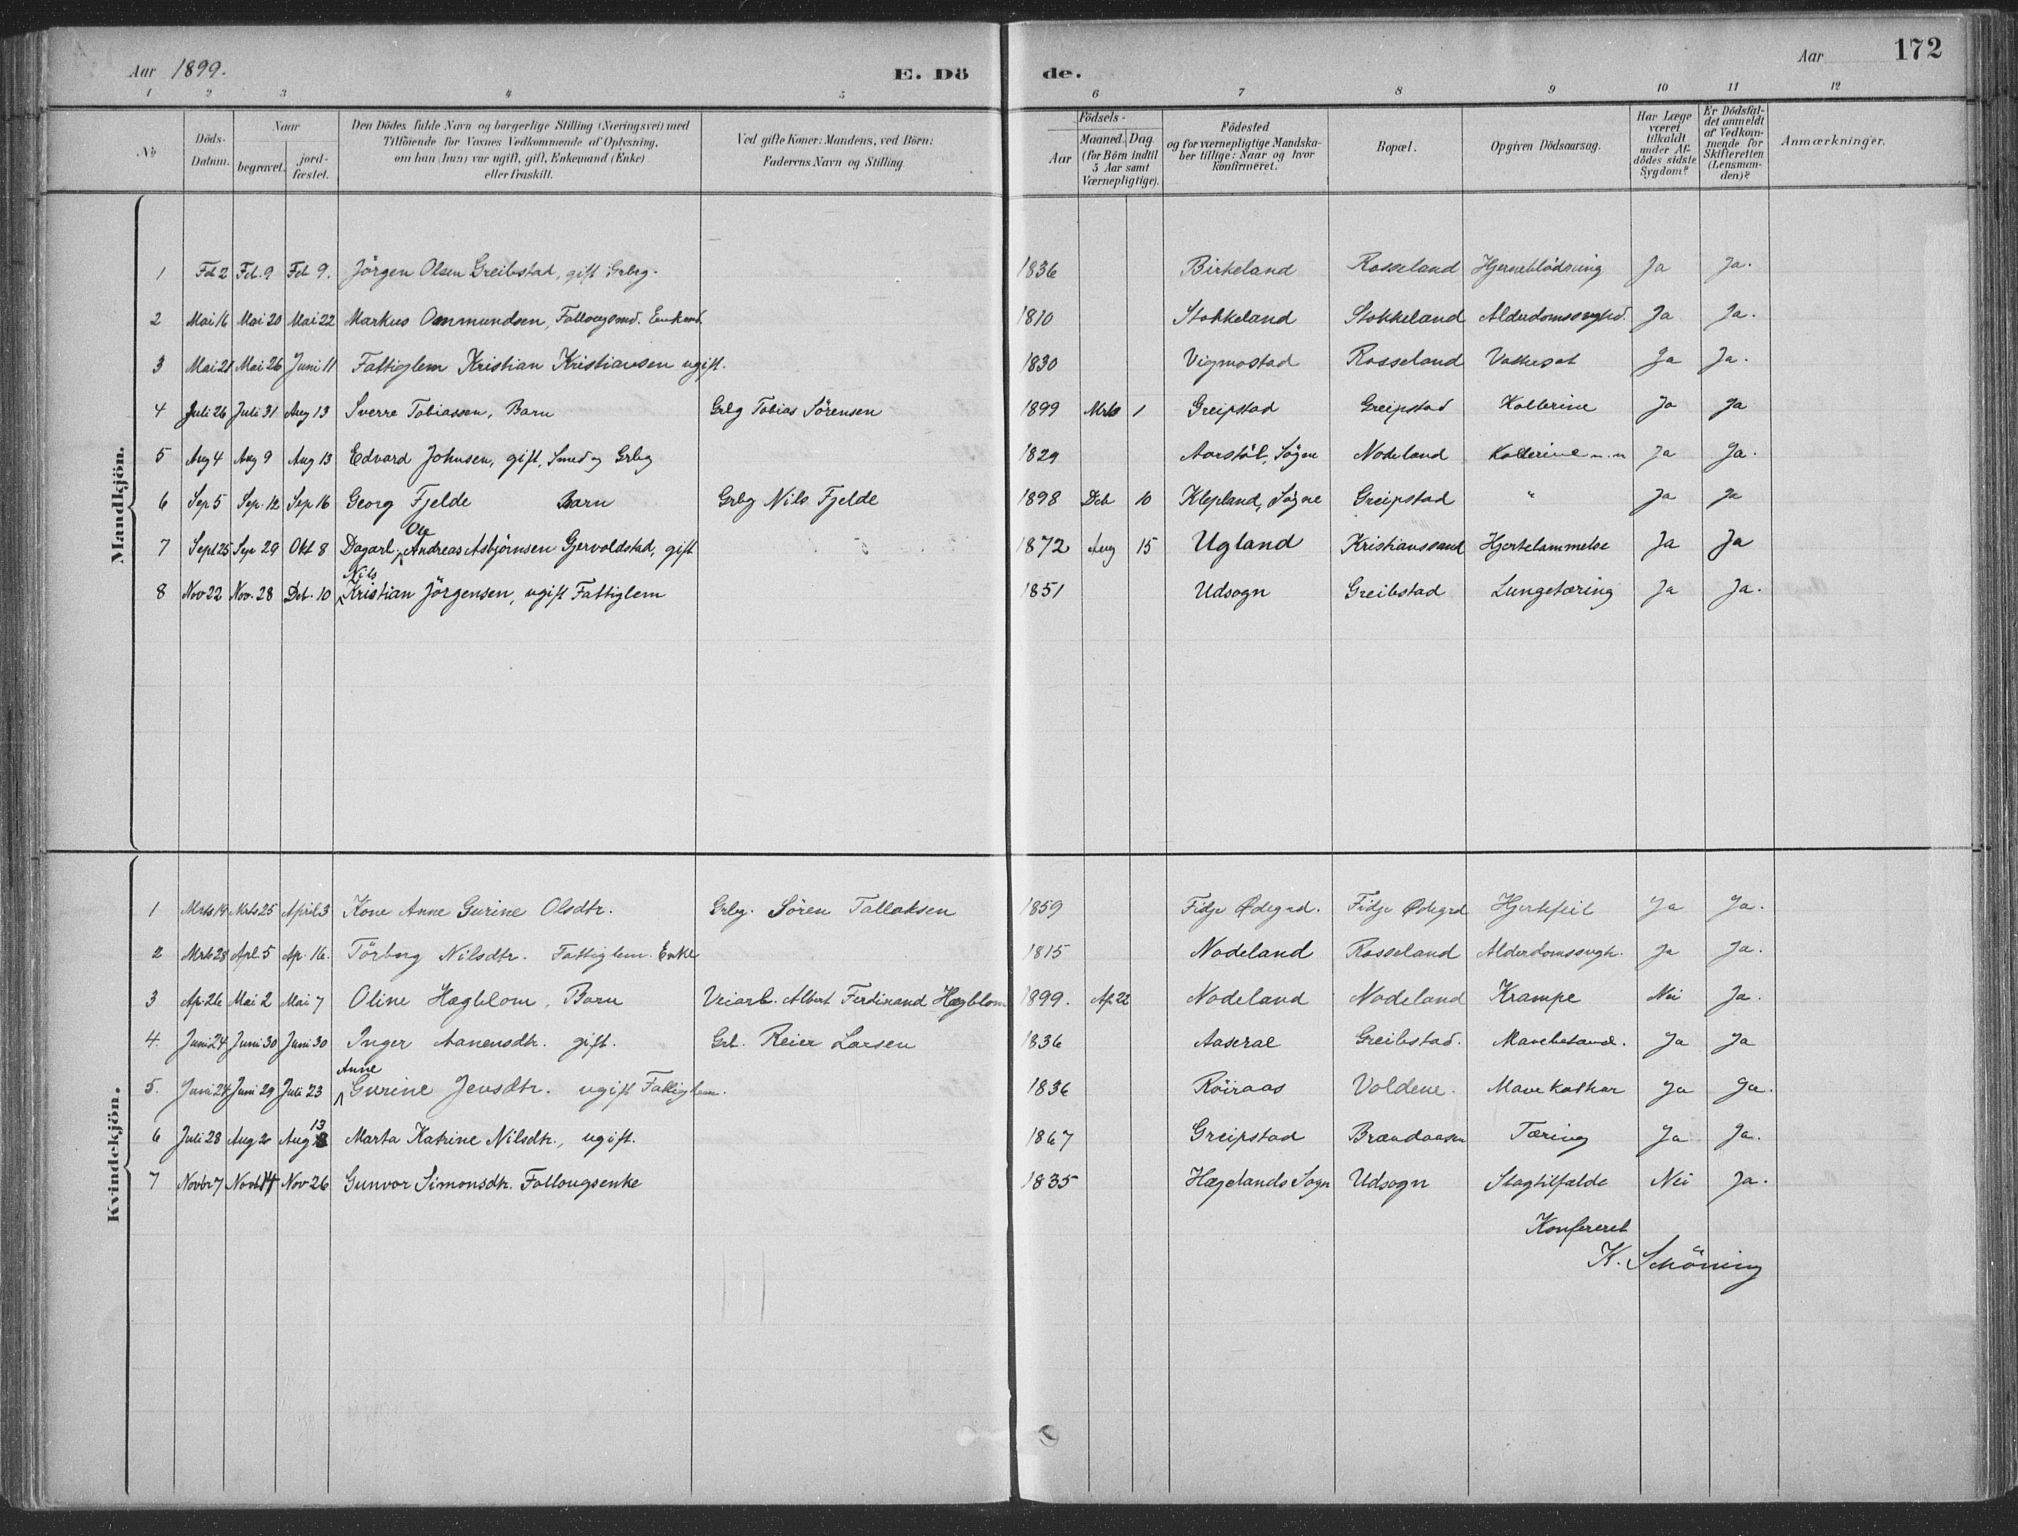 Aar 1899. E. Dö de. Aar 172
1 2 3 4 5 6 7 8 9 10 11 12
No
Döds-Datum.
Naar
begravet.
jord-fæstet.
Den Dödes fulde Navn og borgerlige Stilling (Næringsvei) med
Tilföiende for Voxnes Vedkommende af Oplysning,
om han (hun) var ugift, gift, Enkemand (Enke)
eller fraskilt.
Ved gifte Koner: Mandens, ved Börn:
Faderens Navn og Stilling.
Födsels-
Aar
Maaned. Dag.
(for Börn indtil
5 Aar samt
Værnepligtige).
Födested
og for værnepligtige Mandska-
ber tillige: Naar og hvor
konfirmeret.
Bopæl.
Opgiven Dödsaarsag.
Har Læge
været
tilkaldt
under Af-
dödes sidste
Sygdom?
Er Dödsfal-
det anmeldt
af Vedkom-
mende for
Skifteretten
(Lensman-
den)?
Anmærkninger.
Mandkjön.
1 Feb 2 Feb. 9 Feb 9. Jörgen Olsen Greibstad, gift Grbrg. 1836 Birkeland Rosseland Hjerneblödning Ja Ja.
2 Mai 16 Mai 20 Mai 22 Markus Ommundsen, Follougsmd. Enkemd. 1810 Stokkeland Stokkeland Alderdomssvghed. Ja Ja.
3 Mai 21 Mai 26 Juni 11 Fattiglem Kristian Kristiansen ugift. 1830 Vigmostad Rosseland Vattersot Ja Ja.
4 Juli 26 Juli 31 Aug 13 Sverre Tobiassen, Barn Grbg Tobias Sörensen 1899 Mrts 1 Greipstad Greipstad Kollerine Ja Ja
5 Aug 4 Aug 9 Aug 13 Edvard Johnsen, gift, Smed og Grbg 1829 Aarstöl, Sögne Nodeland Kollerine Ja Ja.
6 Sep 5 Sep. 12 Sep 16 Georg Fjelde Barn Grbg Nils Fjelde 1898 Deb 10 Klepland, Sögne Greipstad " Ja Ja
7 Sept 25 Sep 29 Okt 8 Dagarb. Ole Andreas Asbjörnsen Gjervoldstad, gift 1872 Aug 15 Ugland Kristianssand Hjertelammelse Ja Ja
8 Nov 22 Nov. 28 Deb. 10 Nils Kristian Jörgensen, ugift Fattiglem 1851 Udsogn Greibstad Lungetæring Ja Ja.
Kvindekjön.
1 Mrts 19 Mrts 25 April 3 Kone Anne Gurine Olsdtr. Grbg. Sören Tallaksen 1859 Fidje Ödegrd. Fidje Ödegrd Hjertefeil Ja Ja.
2 Mrts 28 Apl 5 Ap. 16. Törborg Nilsdtr. Fattiglem. Enke 1815 Nodeland Rosseland Alderdomssvgh. Ja Ja.
3 Ap. 26 Mai 2 Mai 7 Oline Hægblom, Barn Veiarb. Albert Ferdinand Hægblom 1899. Ap 22 Nodeland Nodeland Krampe Nei Ja.
4. Juni 24 Juni 30 Juni 30 Inger Aanensdtr. gift. Grb. Reier Larsen 1836 Aaseral Greibstad. Mavebetænd. Ja Ja
5. Juni 24 Juni 29 Juli 23 Anne Gurine Jensdtr. ugift Fattiglem. 1836 Röiraas Voldene. Mavekathar Ja Ja.
6 Juli 28 Aug 2 Aug 13 Marta Katrine Nilsdtr., ugift. 1867 Greipstad Brændaasen Tæring Ja Ja.
7 Novbr 7 Novb 14 Nov 26 Gunvor Simonsdtr. Follougsenke 1835 Hægelands Sogn Udsogn Slagtilfælde Nei Ja.
Konfereret
K. Schöning